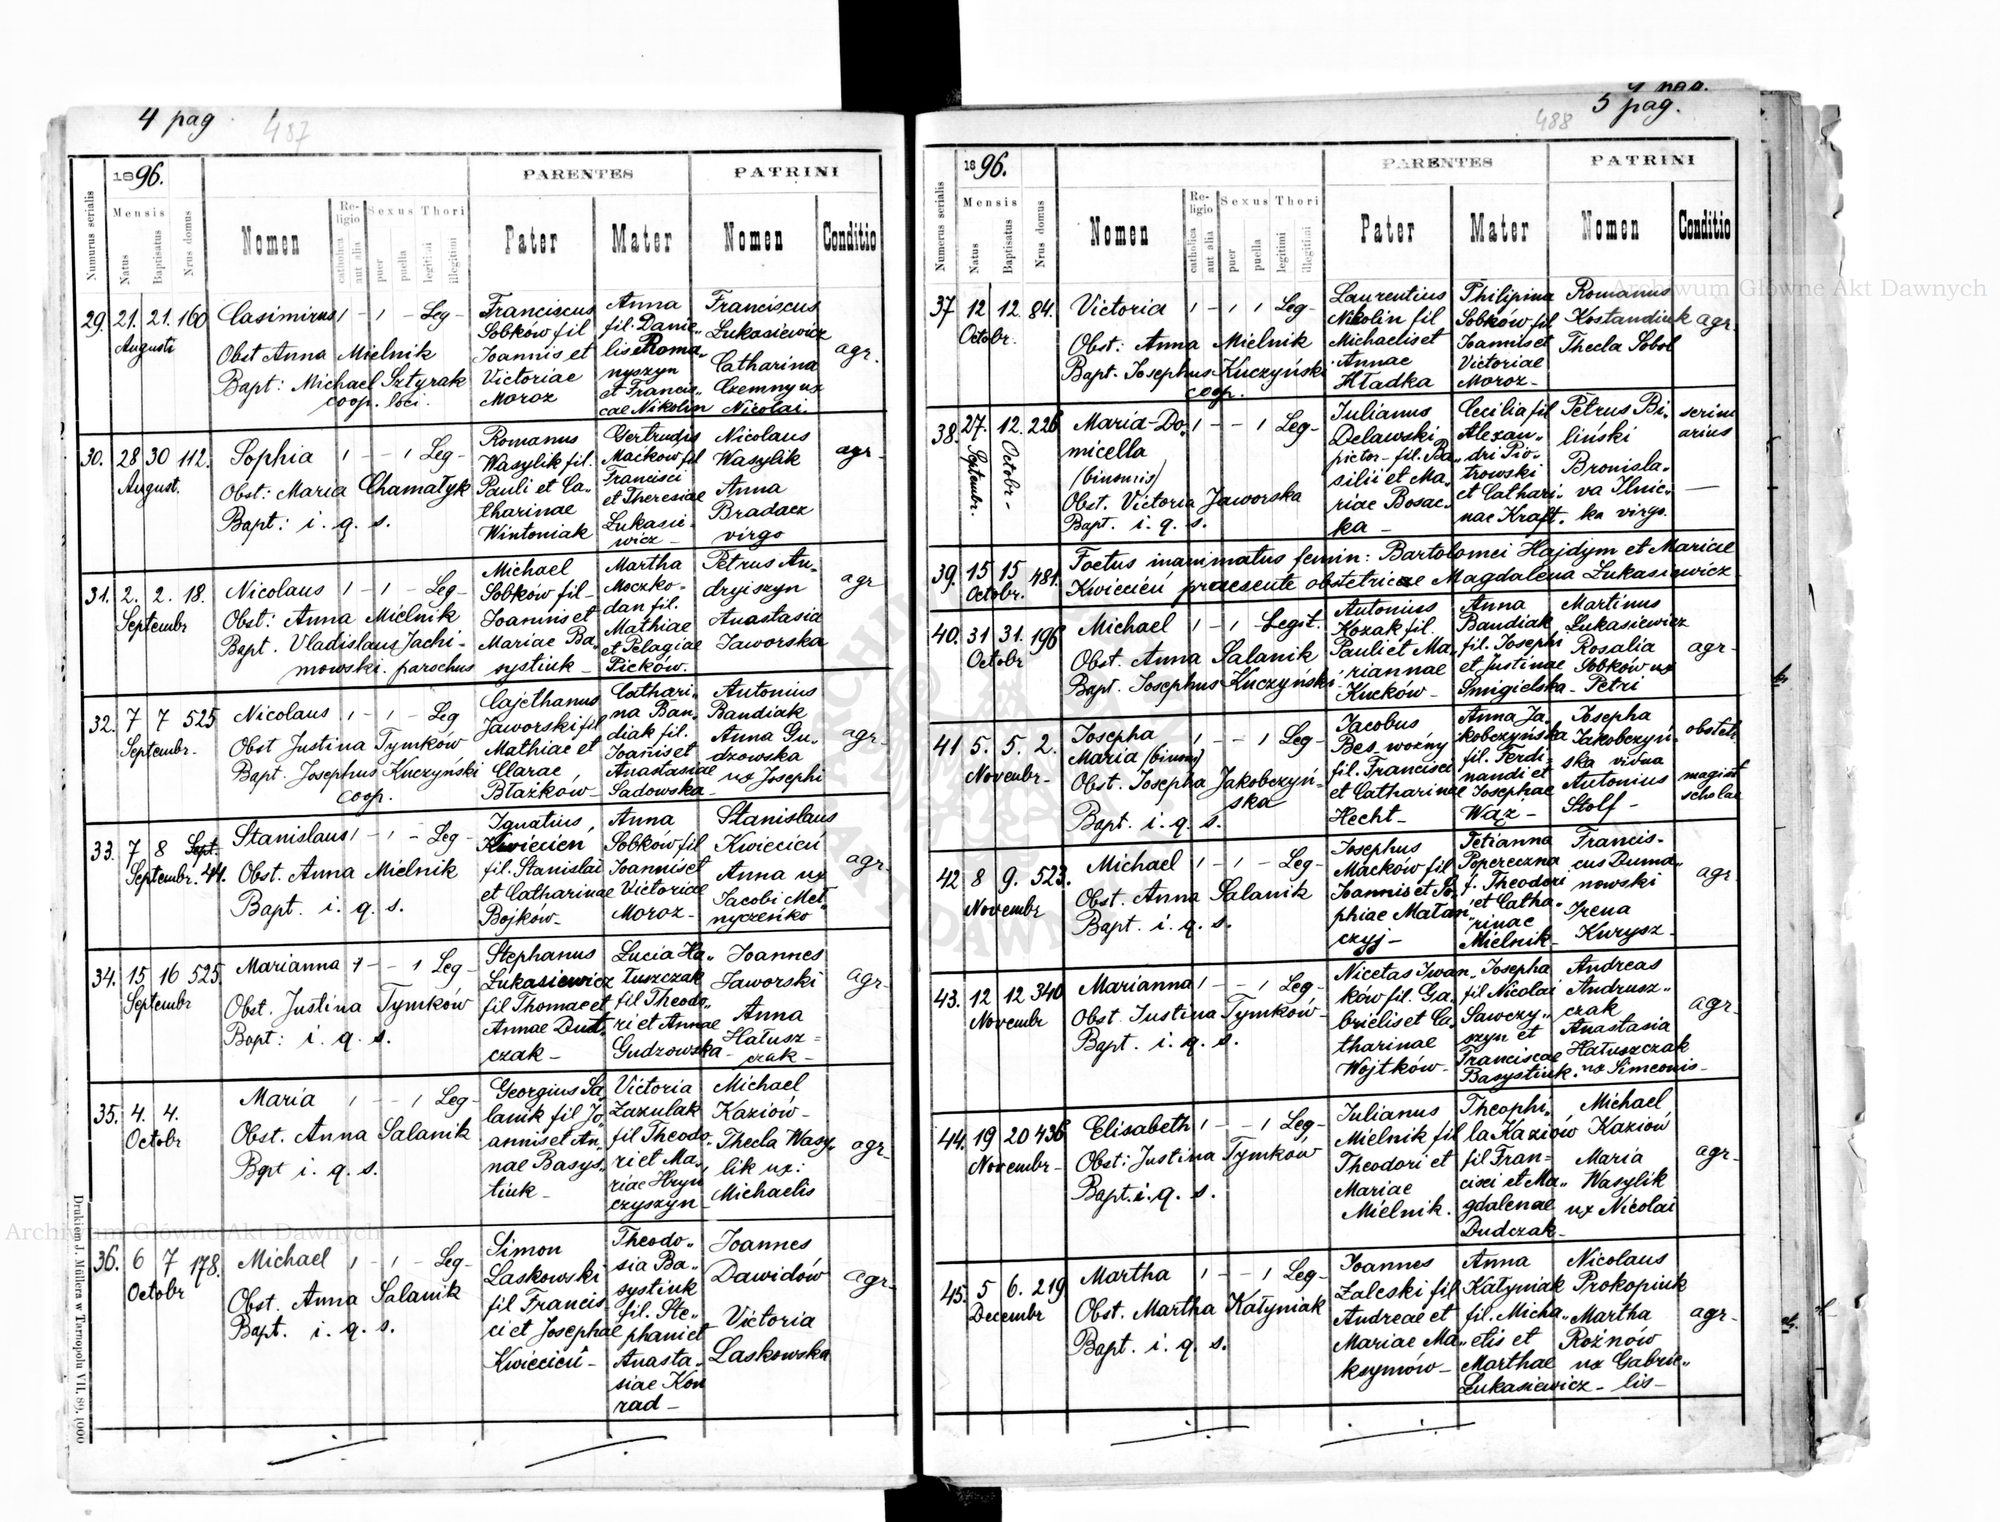 4 pag
487
1896.
PARENTES
PATRINI
Numerus serialis
Mensis
Natus
Baptisatus
Nrus domus
Nomen
Religio
catholica
aut alia
Sexus
puer
puella
Thori
legitimi
illegitimi
Pater
Mater
Nomen
Conditio
29. 21. 21. 160
Augusti
Casimirus 1 – 1 – Leg-
Obst Anna Mielnik
Bapt: Michael Sztyrak
coop. loci.
Franciscus
Sobków fil
Joannis et
Victoriae
Moroz
Anna
fil. Danie„
lis et Roma„
nyszyn
et Francis„
cae Nikolin
Franciscus
Łukasiewicz
Catharina
Czemny ux
Nicolai.
agr.
30. 28 30 112.
August.
Sophia 1 – – 1 Leg-
Obst: Maria Chamałyk
Bapt: i. q. s.
Romanus
Wasylik fil.
Pauli et Ca„
tharinae
Wintoniak
Gertrudis
Maćków fil
Francisci
et Theresiae
Łukasie-
wicz-
Nicolaus
Wasylik
Anna
Bradacz
virgo
agr-
31. 2. 2. 18.
Septembr
Nicolaus 1 – 1 – Leg-
Obst: Anna Mielnik
Bapt. Vladislaus Jachi-
mowski. parochus
Michael
Sobków fil-
Joannis et
Mariae Ba„
systiuk-
Martha
Moczko-
dan fil.
Mathiae
et Pelagiae
Ficków.
Petrus An„
dryiszyn
Anastasia
Jaworska
agr
32. 7 7 525
Septembr-
Nicolaus 1 – 1 – Leg
Obst Justina Tymków
Bapt. Josephus Kuczyński
coop.
Cajethanus
Jaworski fil
Mathiae et
Clarae
Błażków-
Cathari-
na Ban„
diak fil.
Joannis et
Anastasiae
Sadowska-
Antonius
Bandiak
Anna Gu-
dzowska
ux Josephi
agr-
33. 7 8 Sept.
Septembr. 44.
Stanislaus 1 – 1 – Leg-
Obst. Anna Mielnik
Bapt. i. q. s.
Ignatius
Kwiecień
fil. Stanislai
et Catharinae
Bojków-
Anna
Sobków fil
Joannis et
Victoriae
Moroz-
Stanislaus
Kwiecień
Anna ux
Jacobi Mel„
nyczeńko
agr
34. 15 16 525
Septembr
Marianna 1 – – 1 Leg-
Obst. Justina Tymków
Bapt: i. q. s.
Stephanus
Łukasiewicz
fil Thomae et
Annae Dud„
czak-
Lucia Ha„
łuszczak
fil Theodo„
ri et Annae
Gudzowska-
Joannes
Jaworski
Anna
Hałusz=
czak-
agr-
35. 4. 4.
Octobr
Maria 1 – – 1 Leg-
Obst. Anna Salanik
Bapt i. q. s.
Georgius Sa„
lanik fil Jo„
annis et An„
nae Basys„
tiuk-
Victoria
Zazulak
fil Theodo„
ri et Ma„
riae Hryn
czyszyn-
Michael
Kaziów-
Thecla Wasy„
lik ux:
Michaelis
agr-
36. 6 7 178.
Octobr
Michael 1 – 1 – Leg-
Obst. Anna Salanik
Bapt. i. q. s.
Simon
Laskowski
fil Francis-
ci et Josephae
Kwiecień-
Theodo„
sia Ba„
systiuk
fil. Ste„
phani et
Anasta„
siae Kon
rad-
Joannes
Dawidów
Victoria
Laskowska
agr-
Drukiem J. Müllera w Tarnopolu VII. 89. 1000
5 pag.
488
1896.
PARENTES
PATRINI
Numerus serialis
Mensis
Natus
Baptisatus
Nrus domus
Nomen
Religio
catholica
aut alia
Sexus
puer
puella
Thori
legitimi
illegitimi
Pater
Mater
Nomen
Conditio
37 12 12. 84.
Octobr.
Victoria 1 – 1 1 Leg-
Obst: Anna Mielnik
Bapt. Josephus Kuczyński
coop.
Laurentius
Nikolin fil
Michaelis et
Annae
Hładka
Philipina
Sobków fil
Joannis et
Victoriae
Moroz-
Romanus
Kostandiuk
Thecla Sobol
agr.
38. 27. 12. 226
Septembr. Octobr-
Maria-Do„ 1 – – 1 Leg-
micella
(binomis)
Obst. Victoria Jaworska
Bapt. i. q. s.
Julianus
Delawski
pictor- fil. Ba
silii et Ma„
riae Bosac„
ka-
Cecilia fil
Alexan„
dri Pio„
trowski
et Cathari„
nae Kraft.
Petrus Bi„
liński
Bronisla„
va Ilnic„
ka virgo.
scrini
arius
—
39. 15 15 481.
Octobr.
Foetus inanimatus femin: Bartolomei Hajdym et Mariae
Kwiecień praesente obstetricae Magdalena Łukasiewicz-
40. 31 31. 196
Octobr
Michael 1 – 1 – Legit.
Obst. Anna Salanik
Bapt. Josephus Kuczyński
Antonius
Kozak fil.
Pauli et Ma„
riannae
Kucków-
Anna
Bandiak
fil. Josephi
et Justinae
Smigielska-
Martinus
Łukasiewicz
Rosalia
Sobków ux
Petri
agr-
41 5. 5. 2.
Novembr-
Josepha 1 – – 1 Leg-
Maria (binom)
Obst. Josepha Jakobczyń-
ska
Bapt. i. q. s.
Jacobus
Bes woźny
fil. Francisci
et Catharinae
Hecht-
Anna Ja„
kobczyńska
fil. Ferdi-
nandi et
Josephae
Wąż-
Josepha
Jakobczyń„
ska vidua
Antonius
Stolf-
obstetr.
magist
scholae
42 8 9. 523.
Novembr
Michael 1 – 1 – Leg-
Obst. Anna Salanik
Bapt. i. q. s.
Josephus
Maćków fil
Joannis et So
phiae Małan„
czyj-
Tetianna
Popereczna
f. Theodori
et Catha„
rinae
Mielnik-
Francis-
cus Duma„
nowski
Irena
Kurysz-
agr-
43. 12 12 340
Novembr
Marianna 1 – – 1 Leg-
Obst. Justina Tymków-
Bapt. i. q. s.
Nicetas Iwan„
ków fil. Ga„
brielis et Ca„
tharinae
Wojtków-
Josepha
fil Nicolai
Sawczy„
szyn et
Franciscae
Basystiuk.
Andreas
Andrusz„
czak
Anastasia
Hałuszczak
ux Simeonis-
agr-
44. 19 20 436
Novembr-
Elisabeth 1 – – 1 Leg-
Obst: Justina Tymków
Bapt. i. q. s.
Julianus
Mielnik fil
Theodori et
Mariae
Mielnik.
Theophi„
la Kaziów
fil Fran=
cisci et Ma„
gdalenae
Dudczak-
Michael
Kaziów
Maria
Wasylik
ux Nicolai
agr-
45. 5 6. 219
Decembr
Martha 1 – – 1 Leg-
Obst. Martha Kałyniak
Bapt. i. q. s.
Joannes
Zaleski fil
Andreae et
Mariae Ma„
ksymów-
Anna
Kałyniak
fil. Micha„
elis et
Marthae
Łukasiewicz-
Nicolaus
Prokopiuk
Martha
Rożnów
ux Gabrie„
lis-
agr-
Archiwum Główne Akt Dawnych
Archiwum Główne Akt Dawnych